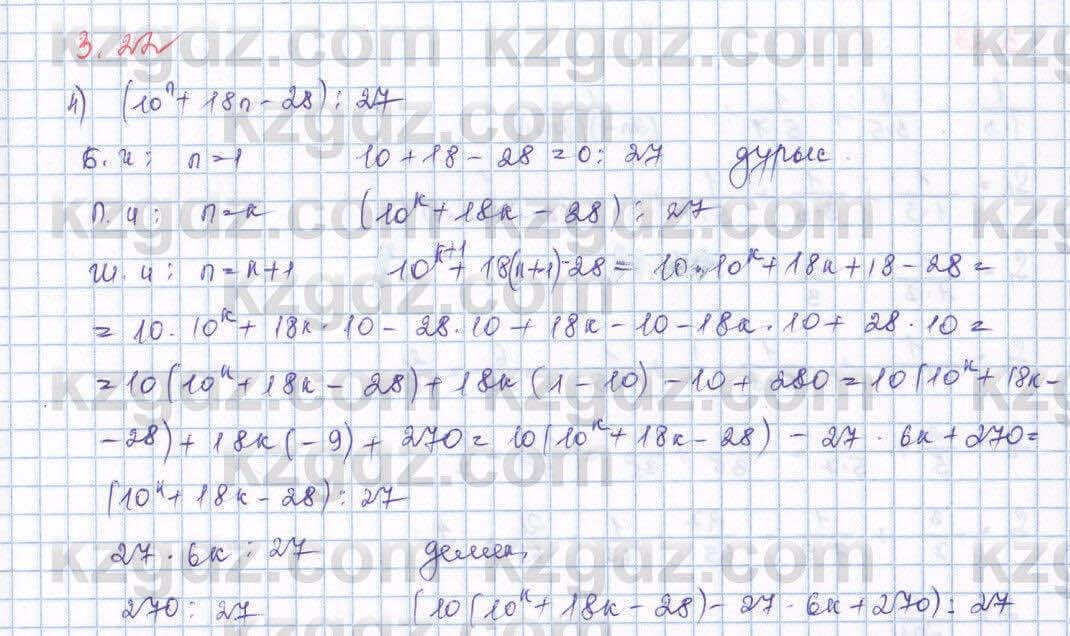 3.22
4) (10ⁿ + 18n - 28) ⋮ 27
Б.и: n=1 10+18-28=0⋮27 дұрыс.
П.и: n=k (10ᵏ+18k-28)⋮27
Ш.и: n=k+1 10ᵏ⁺¹+18(k+1)-28= 10·10ᵏ+18k+18-28=
=10·10ᵏ+18k·10-28·10+18k-10-18k·10+28·10=
=10(10ᵏ+18k-28)+18k(1-10)-10+280=10(10ᵏ+18k-
-28)+18k(-9)+270=10(10ᵏ+18k-28)-27·6k+270=
(10ᵏ+18k-28)⋮27
27·6k⋮27 демек,
270⋮27 (10(10ᵏ+18k-28)-27·6k+270)⋮27
kzgdz.com